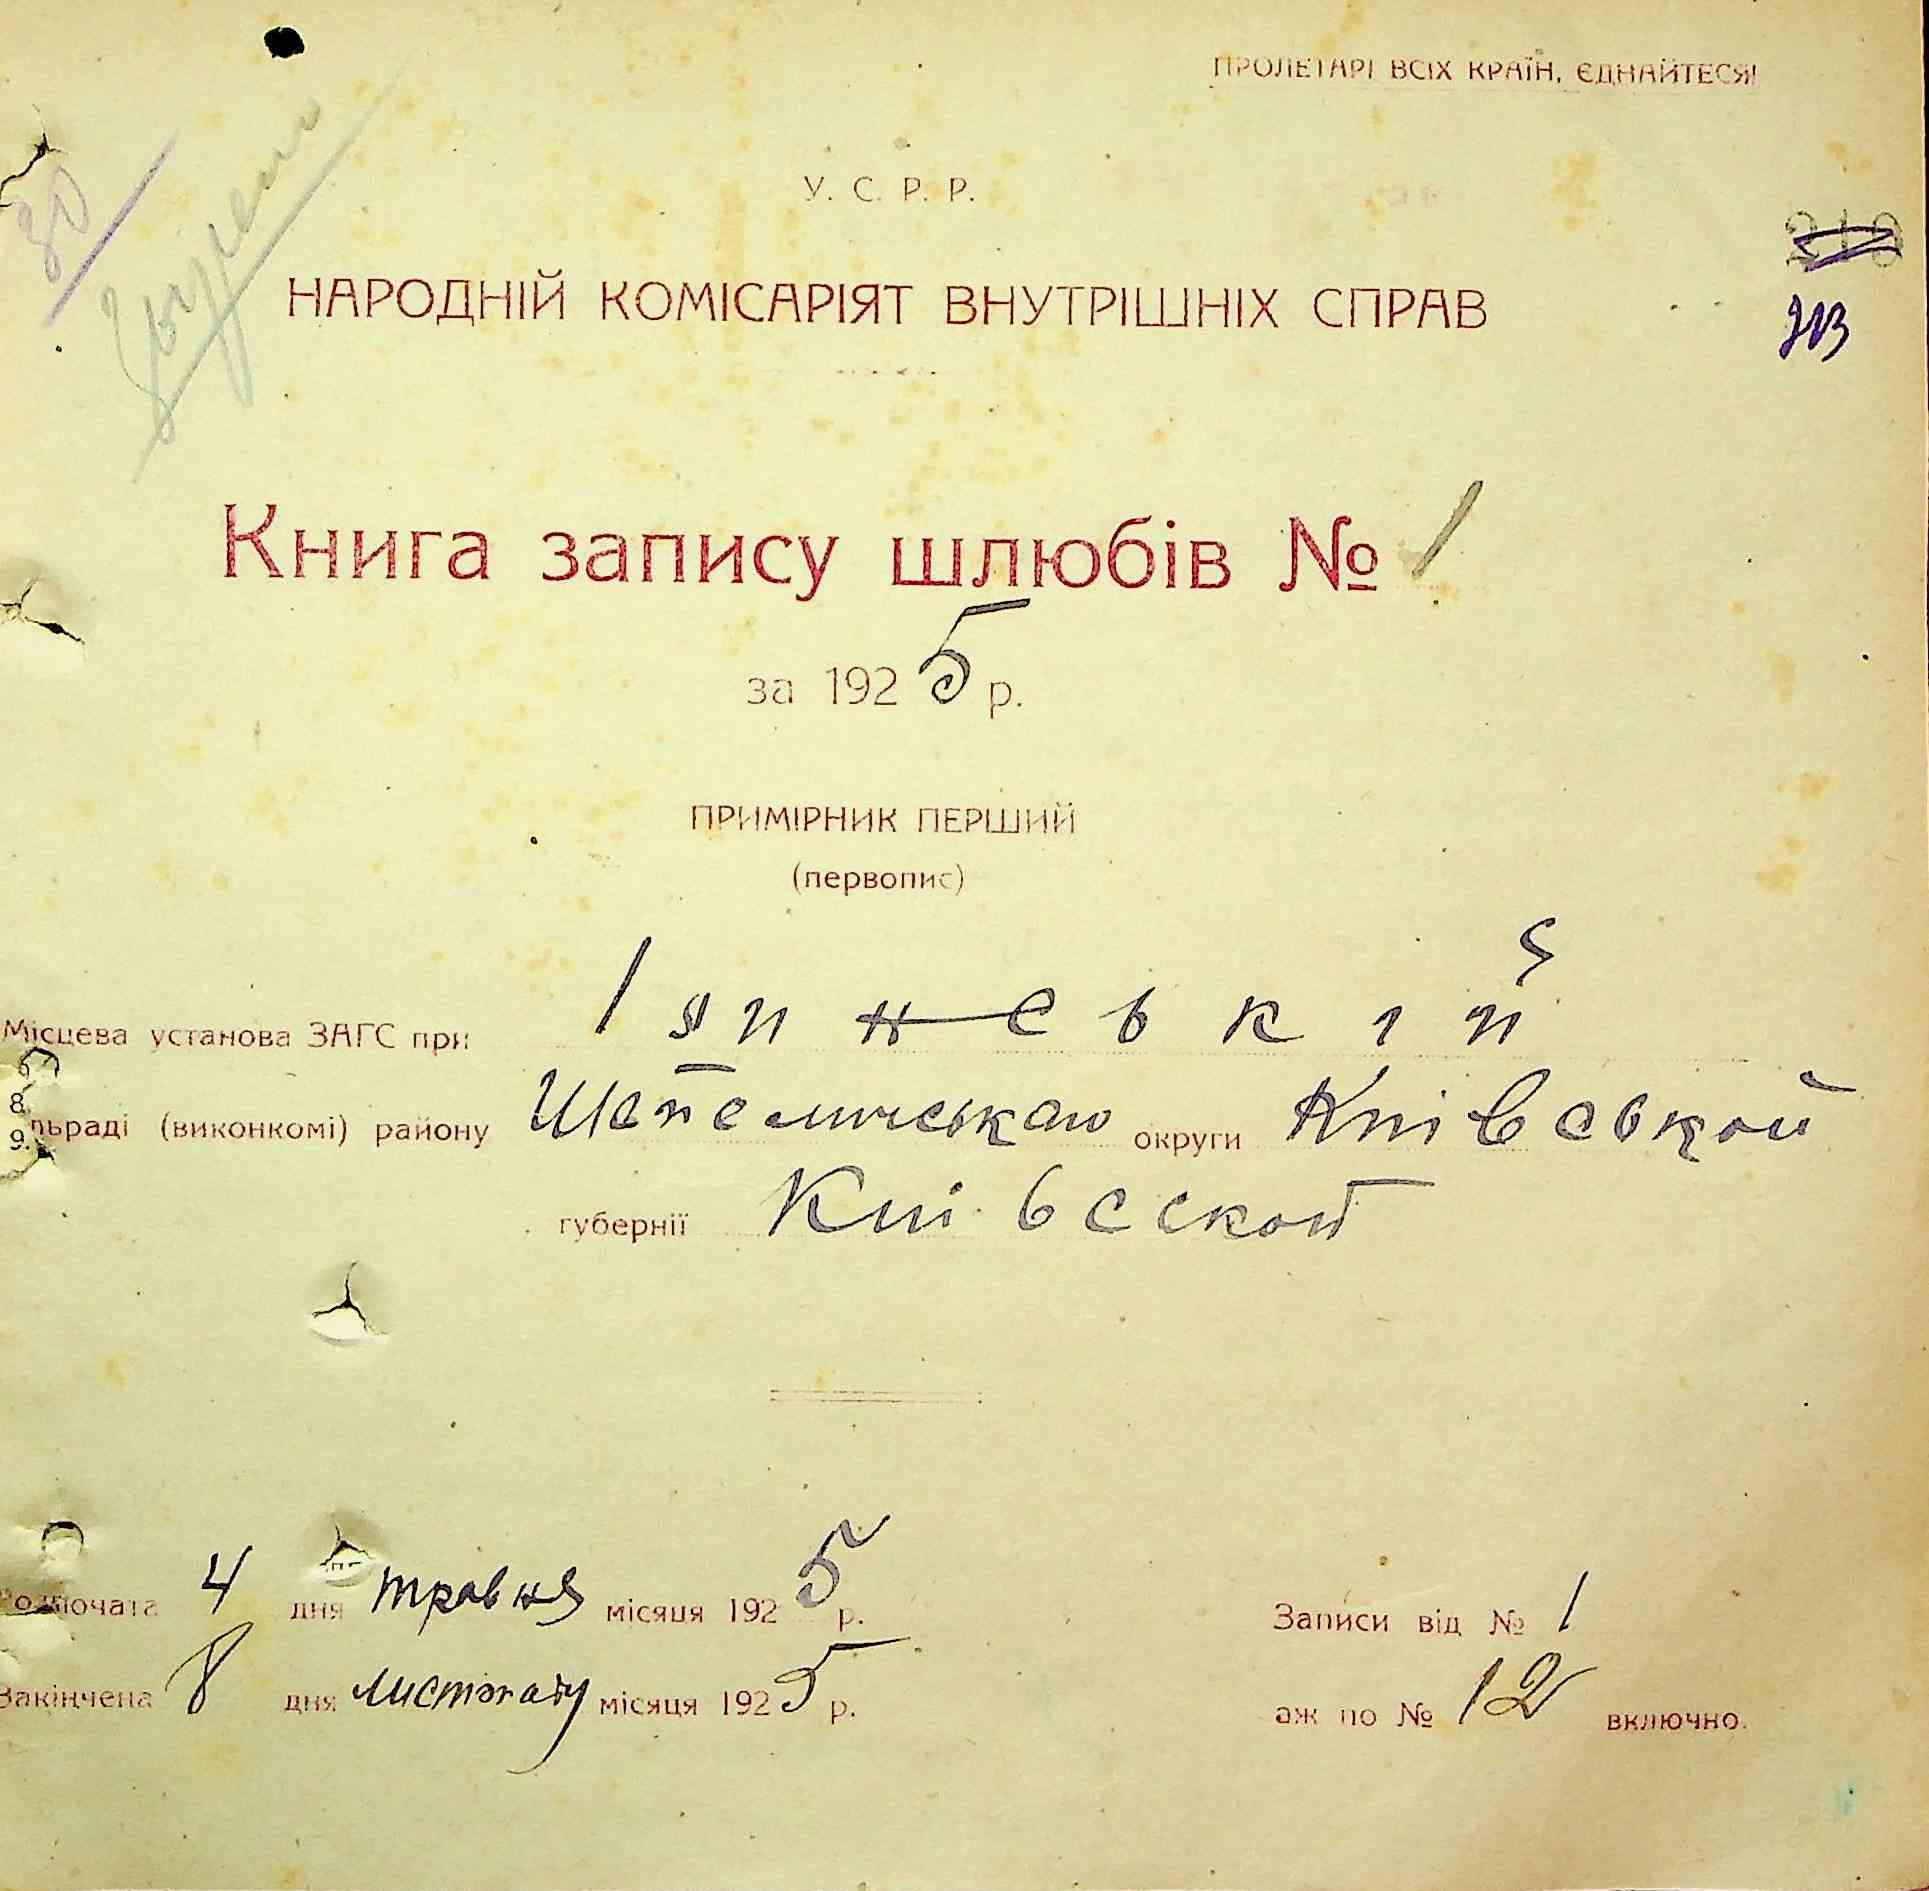 ПРОЛЕТАРІ ВСІХ КРАЇН, ЄДНАЙТЕСЯ!
30
У. С. Р. Р.
НАРОДНІЙ КОМІСАРІЯТ ВНУТРІШНІХ СПРАВ
213
Книга запису шлюбів № 1
за 1925 р.
ПРИМІРНИК ПЕРШИЙ
(первопис)
Місцева установа ЗАГС при
8.
9.
льраді (виконкомі) району Шепеличськаю округи Киівськой
губернії Киівсской
Розпочата 4 дня травня місяця 1925 р. Записи від № 1
Закінчена 8 дня листопаду місяця 1925 р. аж по № 12 включно.